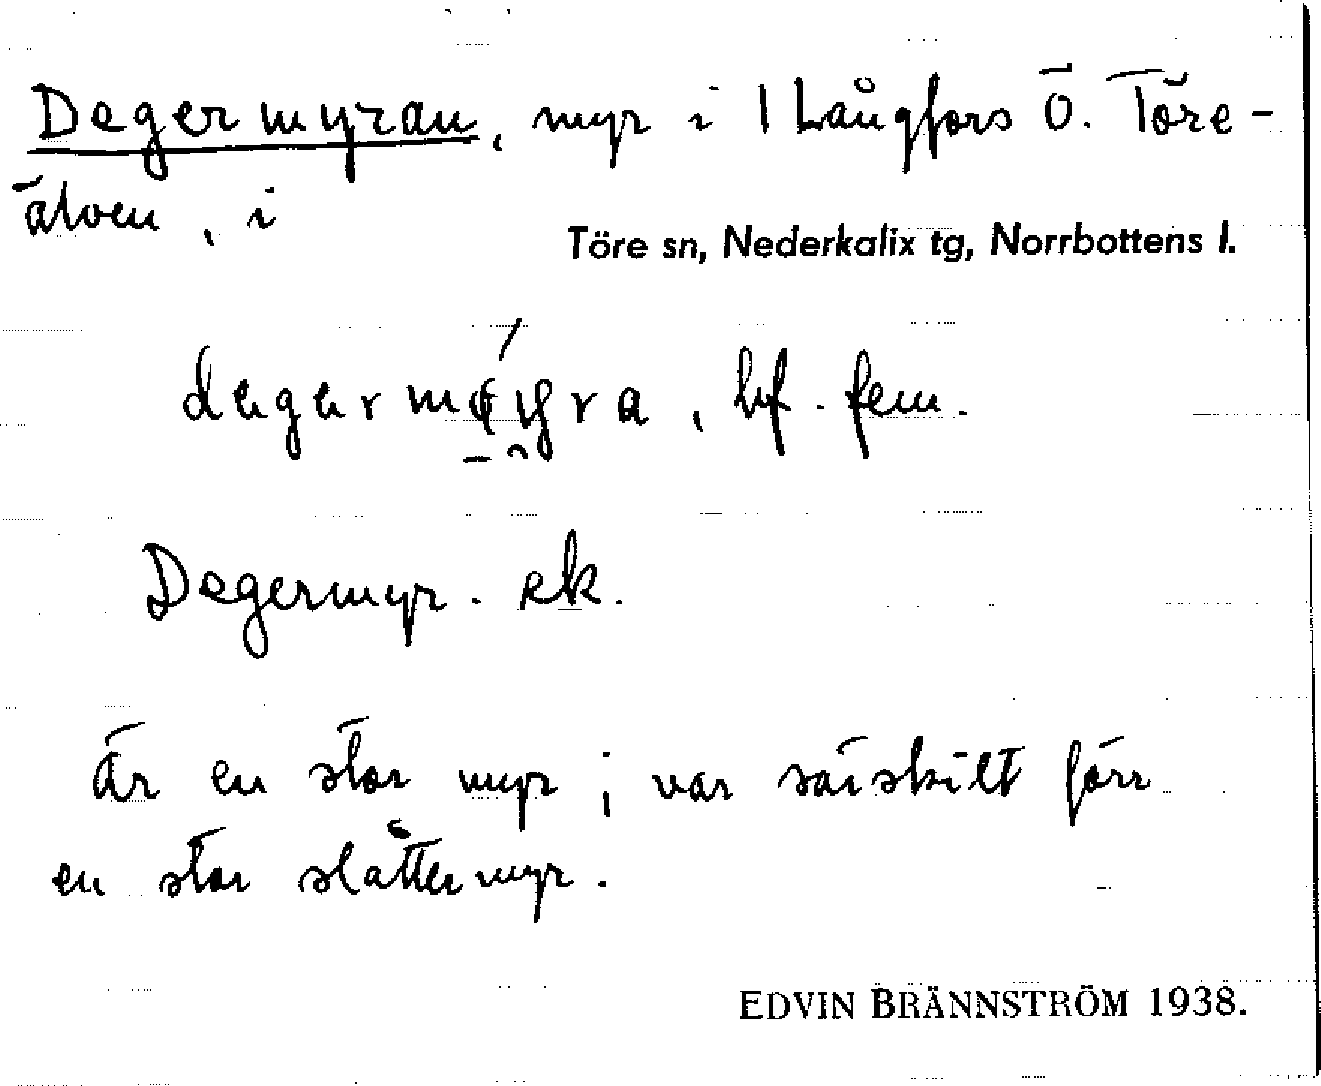 Degermyran, myr i 1 Långfors Ö. Töre-
älven, i
Töre sn, Nederkalix tg, Norrbottens l.
bf. fem.
Degermyr. ek.
är en stor myr; var särskilt förr
en stor slåttermyr.
EDVIN BRÄNNSTRÖM 1938.